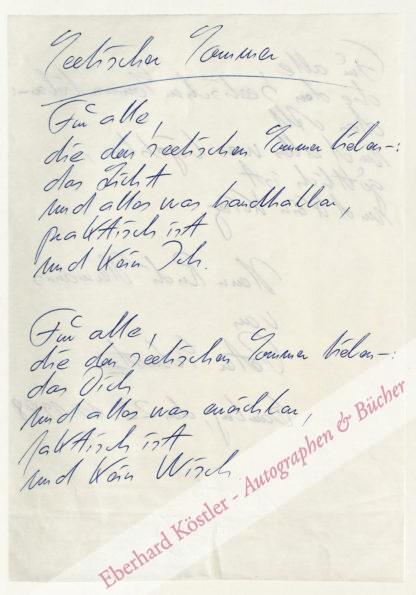 Poetischer Sommer
Für alle,
die den poetischen Sommer lieben -:
das Licht
und alles was handhabbar,
praktisch ist
und kein Ich.
Für alle,
die den poetischen Sommer lieben -:
das Dich
und alles was
faktisch ist
und kein Wisch
Eberhard Köstler - Autographen & Bücher